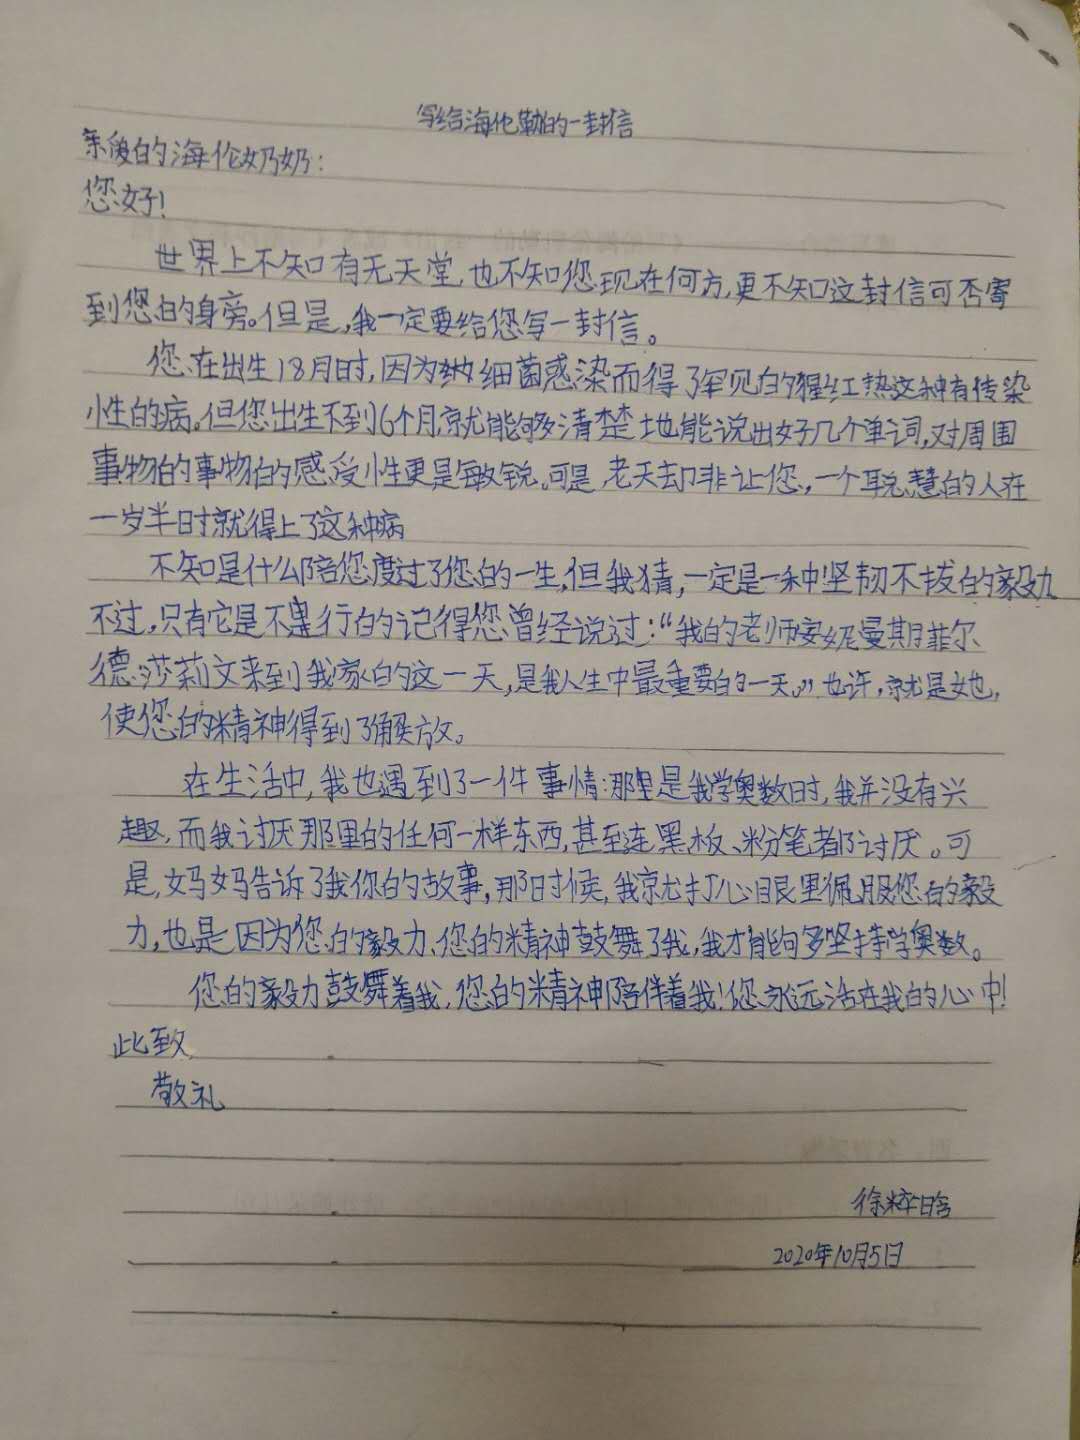 写给海伦勒的一封信
亲爱的海伦奶奶:
您好!
世界上不知有无天堂,也不知您现在何方,更不知这封信可否寄
到您的身旁。但是,我一定要给您写一封信。
您在出生18月时,因为细菌感染而得了罕见的猩红热这种有传染
性的病。但您出生不到6个月就能够清楚地能说出好几个单词,对周围
事物的事物的感受性更是敏锐。可是,老天却非让您,一个聪慧的人在
一岁半时就得上了这种病
不知是什么陪您度过了您的一生,但我猜,一定是一种坚韧不拔的毅力
不过,只有它是不行的记得您曾经说过:“我的老师安妮曼斯菲尔
德莎莉文来到我家的这一天,是我人生中最重要的一天。”也许,就是她,
使您的精神得到了解放。
在生活中,我也遇到了一件事情:那里是我学奥数时,我并没有兴
趣,而我讨厌那里的任何一样东西,甚至连黑板、粉笔都讨厌。可
是,妈妈告诉了我你的故事,那时候,我就打心眼里佩服您的毅
力,也是因为您的毅力、您的精神鼓舞了我,我才能够坚持学奥数。
您的毅力鼓舞着我,您的精神陪伴着我!您永远活在我的心中!
此致
敬礼
徐粹晗
2020年10月5日